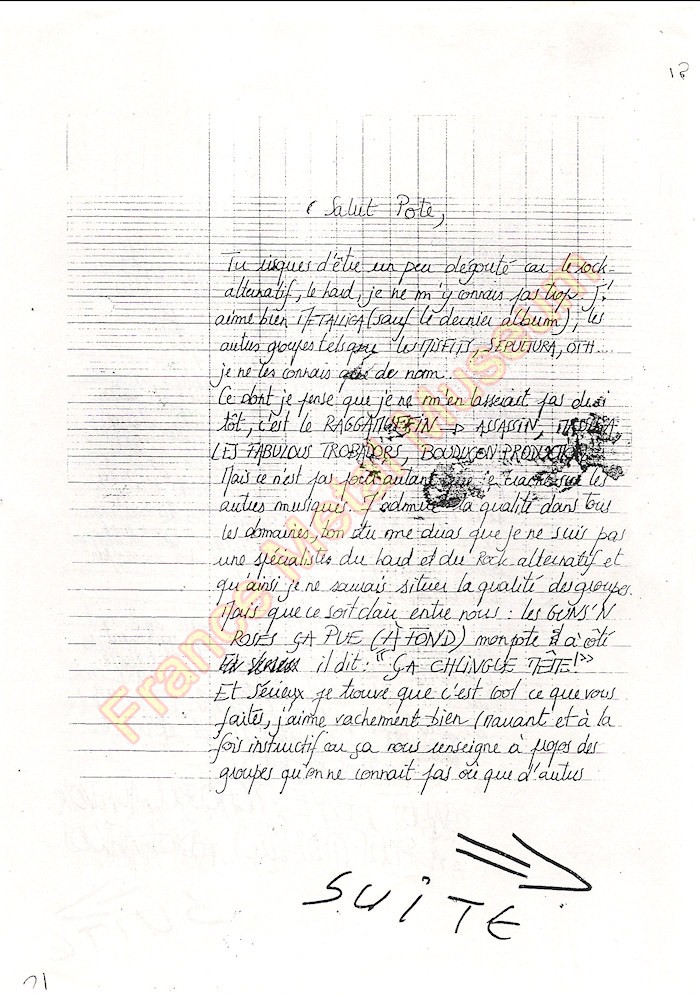 Salut Pote,
Tu risques d'être un peu dégouté car le rock-
alternatif, le hard, je ne m'y connais pas trop. J'
aime bien METALLICA (sauf le dernier album), les
autres groupes tels que les MISFITS, SEPULTURA, OTH....
je ne les connais que de nom.
Ce dont je pense que je ne m'en lasserait pas de si
tôt, c'est le RAGGAMUFFIN → ASSASSIN,
LES FABULOUS TROBADORS, BOUDUCON PRODUCTION
Mais ce n'est pas pour autant que je crache sur les
autres musiques. J'admire la qualité dans tous
les domaines, bon tu me diras que je ne suis pas
une spécialiste du hard et du Rock alternatif et
qu'ainsi je ne saurais situer la qualité des groupes.
Mais que ce soit clair entre nous : les GUNS'N
ROSES ÇA PUE (À FOND) mon pote à côté
il dit : "ÇA CHLINGUE TÊTE!"
Et sérieux je trouve que c'est cool ce que vous
faites, j'aime vachement bien (marrant et à la
fois instructif car ça nous renseigne à propos des
groupes qu'on ne connait pas où que d'autres
SUITE
21
France Metal Museum